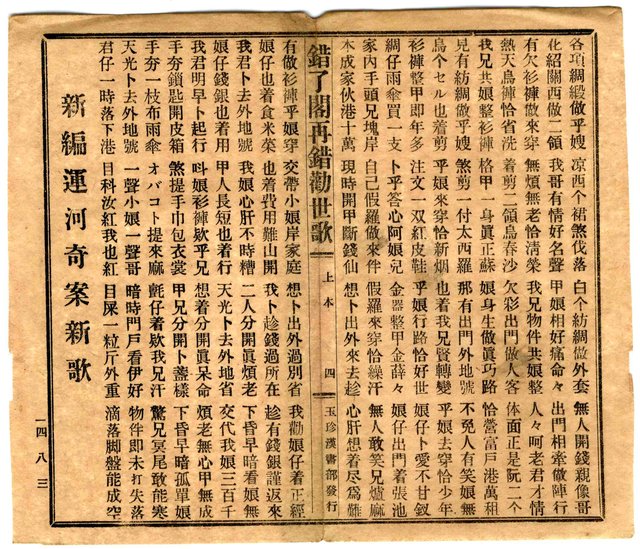 各項綢緞做乎嫂 涼西个裙煞伐落 白个紡綢做外套 無人開錢親像哥
化紹關西做一領 我哥有情好名聲 甲娘相好痛命々 出門相牽做陣行
有欠衫褲做來穿 無煩無老恰清榮 我兄物件共娘整 人々呵老君才情
熱天鳥褲恰省洗 着剪二領鳥春沙 欠彩出門做人客 體面正是阮二个
我兄共娘整衫褲 格甲一身眞正蘇 娘身生做眞巧路 恰營富戶港萬租
見有紡綢做乎嫂 煞剪一付太西羅 那有出門外地號 不免人有笑娘無
鳥个セル也着剪 乎娘來穿恰新烟 也着我兄賢轉變 乎娘去穿恰少年
衫褲整甲即年多 注文一双紅皮鞋 乎娘行路恰好世 娘仔卜愛不甘釵
綢仔雨傘買一支 卜乎答心阿娘兒 金器整甲金薛々 娘仔出門着張池
家內手頭兄塊岸 自己假羅做來件 假羅來穿恰繰汗 無人敢笑兄爐麻
本成家伙港十萬 現時開甲斷錢仙 想卜出外來去趁 心肝想着尽爲難
錯了閣再錯勸世歌 上本 四 玉珍漢書部發行
有做衫褲乎娘穿 交帶小娘岸家庭 想卜出外過別省 我勸娘仔着正經
娘仔也着食米菜 也着費用難山開 我卜趁錢過所在 趁有錢銀謹返來
我君卜去外地號 我娘心肝不時糟 二人分開眞煩老 下昏早暗看娘無
娘仔錢銀也着用 甲人長短也着行 天光卜去外地省 交代我娘三百千
我君明早卜起行 叫娘衫褲欸乎兄 想着分開眞呆命 煩老無心甲無成
手夯鎖匙開皮箱 煞提手巾包衣裳 甲兄分開卜盞樣 下昏早暗孤單娘
手夯一枝布雨傘 オバコト提來麻 氈仔着欸我兄汗 驚兄冥尾敢能寒
天光卜去外地號 一聲小娘一聲哥 暗時門戶看伊好 物件即未打失落
君仔一時落下港 目科汝紅我也紅 目屎一粒斤外重 滴落脚盤能成空
新編運河奇案新歌
一四八三